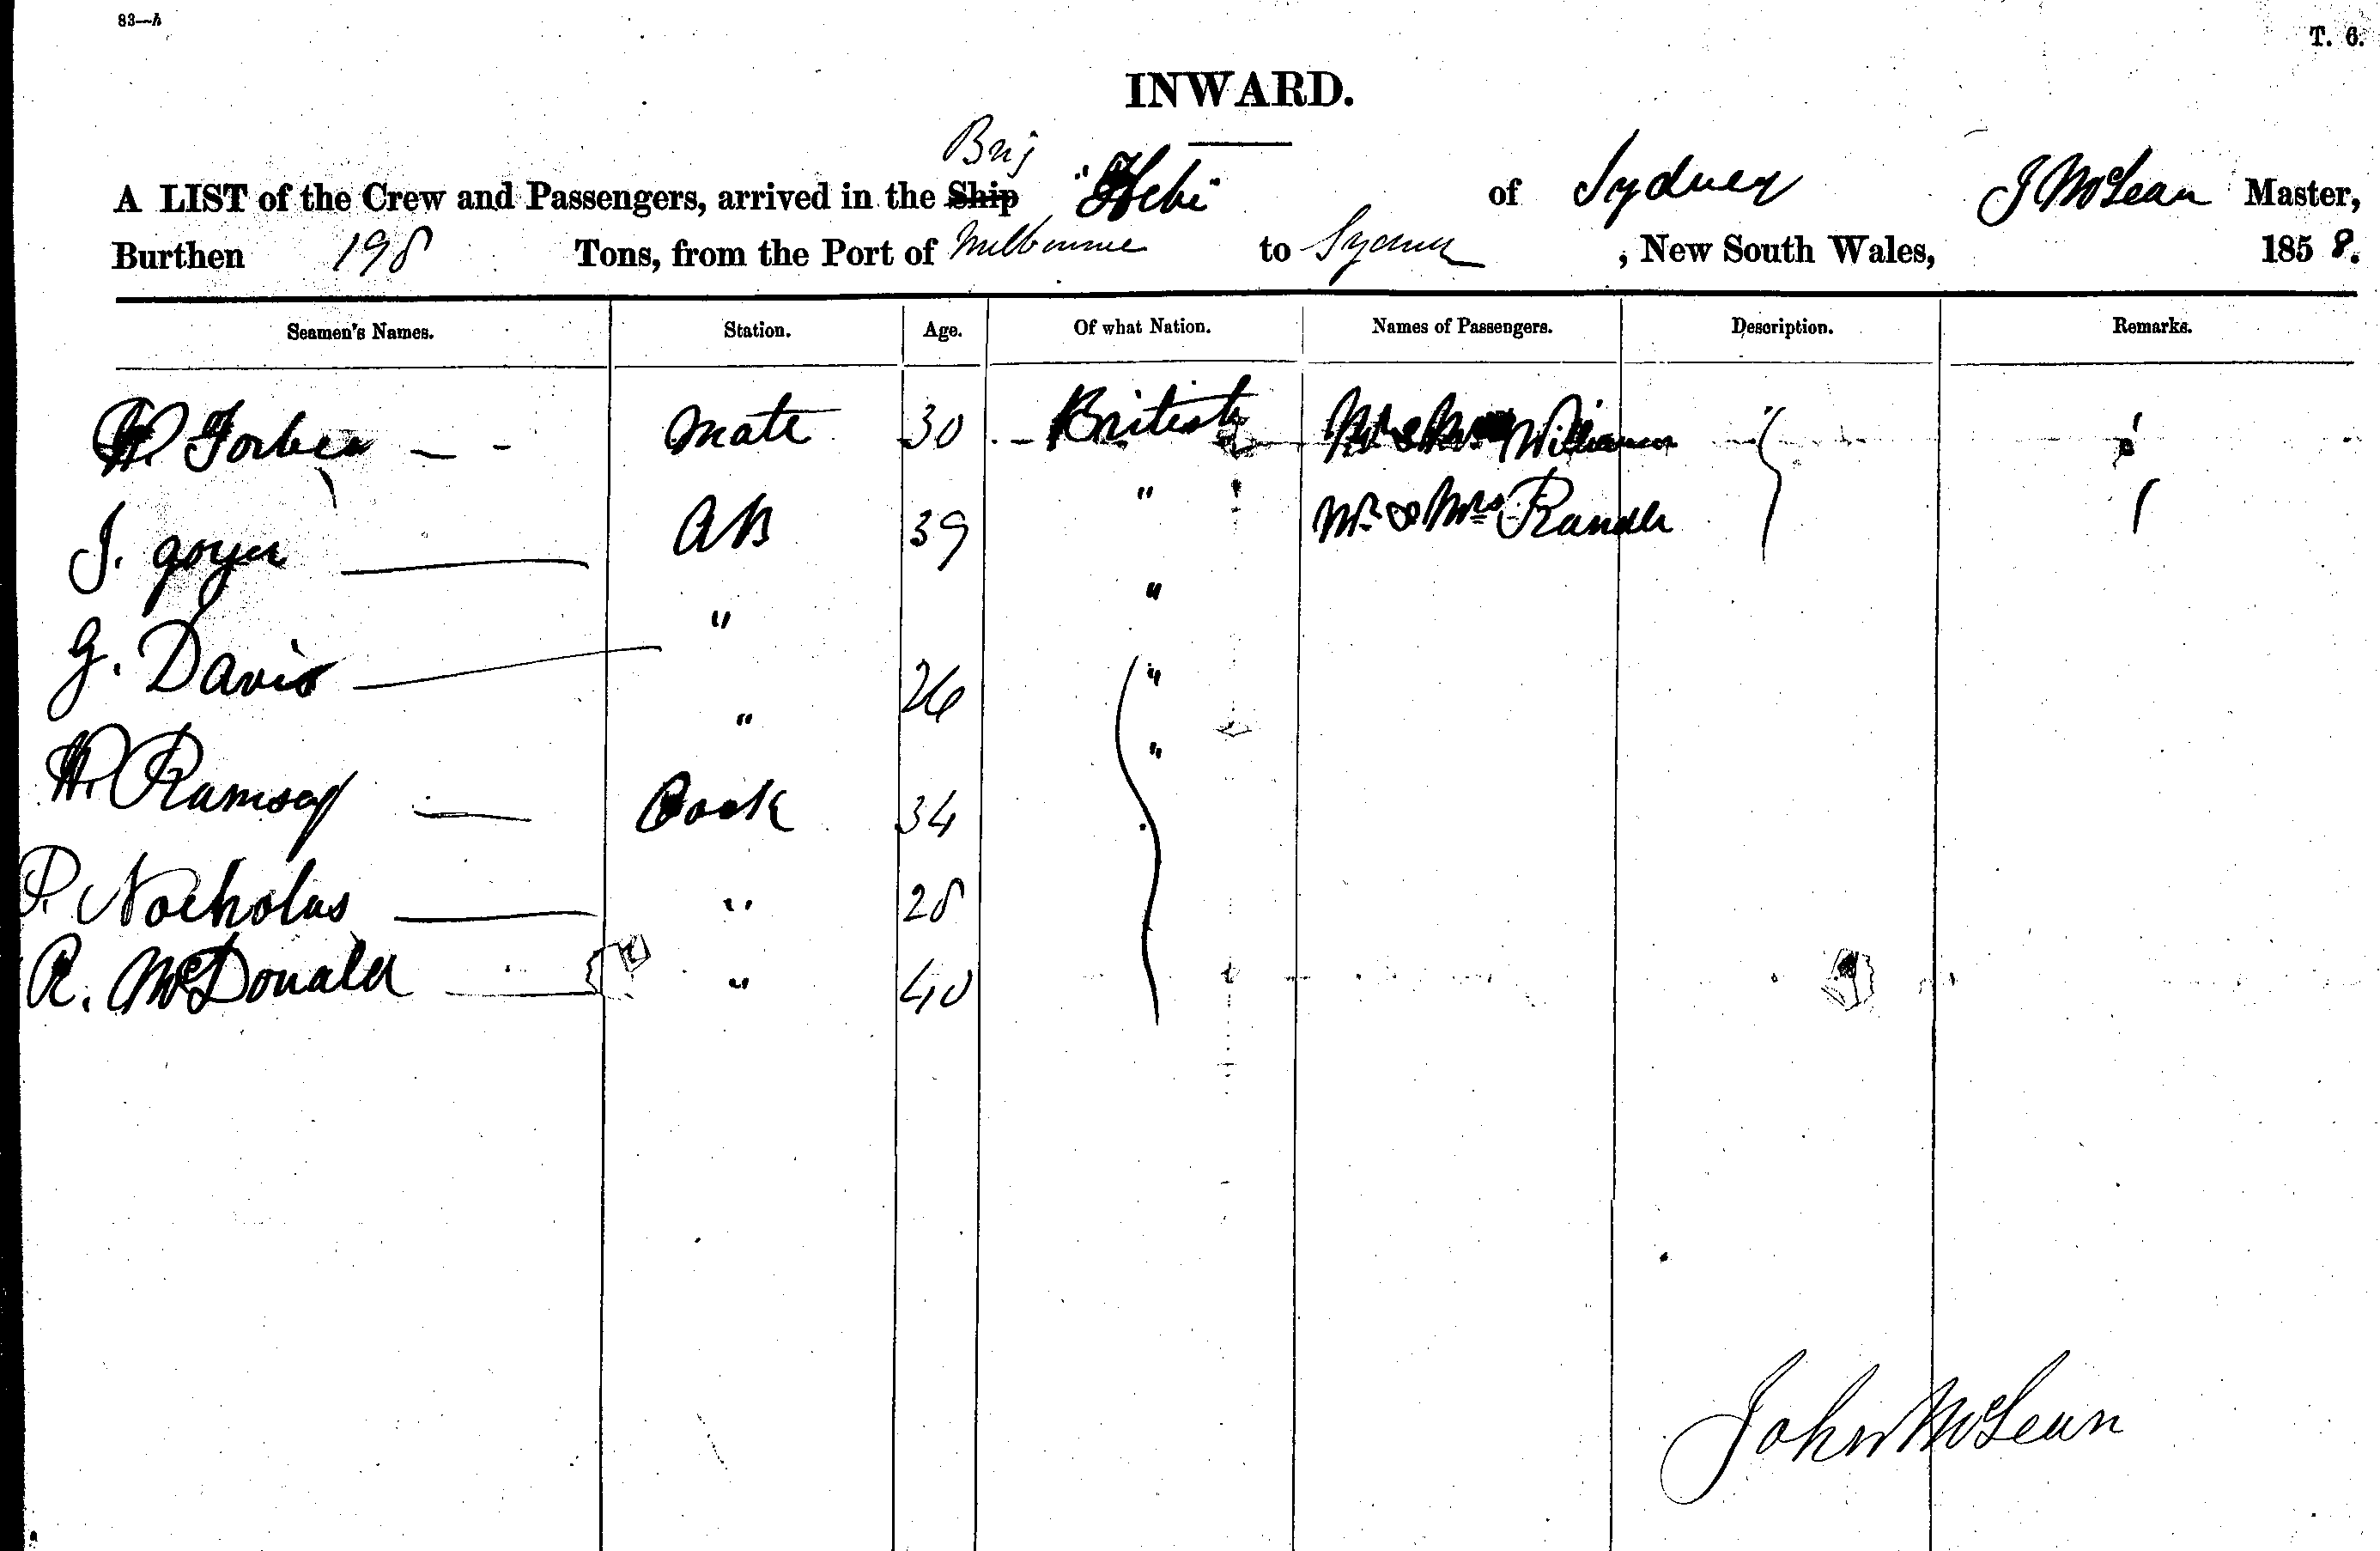 83—h
T. 6.
INWARD.
Brig
A LIST of the Crew and Passengers, arrived in the Ship "Hebe" of Sydney J McLean Master,
Burthen 198 Tons, from the Port of Melbourne to Sydney , New South Wales, 1858.
Seamen's Names. Station. Age. Of what Nation. Names of Passengers. Description. Remarks.
W. Forbes — - Mate 30 - British Mr & Mrs Williamson
J. Goyer — AB 39 " Mr & Mrs Randle
G. Davis — " 26 "
W. Ramsay — " 34 "
Cook
P. Nocholas — " 28 "
R. McDonald — " 40
John McLean